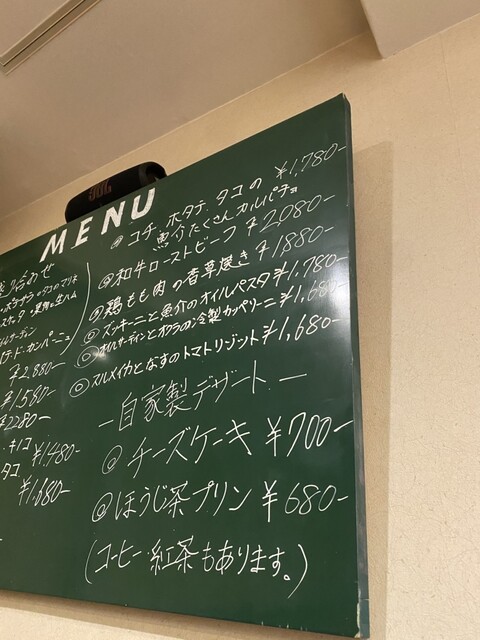 JBL
MENU
盛り合わせ
タコのマリネ
生ハム
テ・ド・カンパーニュ
¥2,880-
¥1,580-
¥2280-
キノコ
¥1,480-
タコ
¥1,680-
◎コチ、ホタテ、タコの ¥1,780-
魚介たくさんカルパチョ
◎和牛ローストビーフ ¥2080-
◎鶏もも肉の香草焼き ¥1880-
◎ズッキーニと魚介のオイルパスタ ¥1,780-
◎オイルサーディンとオクラの冷製カッペリーニ ¥1,680-
◎スルメイカとなすのトマトリゾット ¥1,680-
―自家製デザート―
◎チーズケーキ ¥700-
◎ほうじ茶プリン ¥680-
(コーヒー・紅茶もあります。)